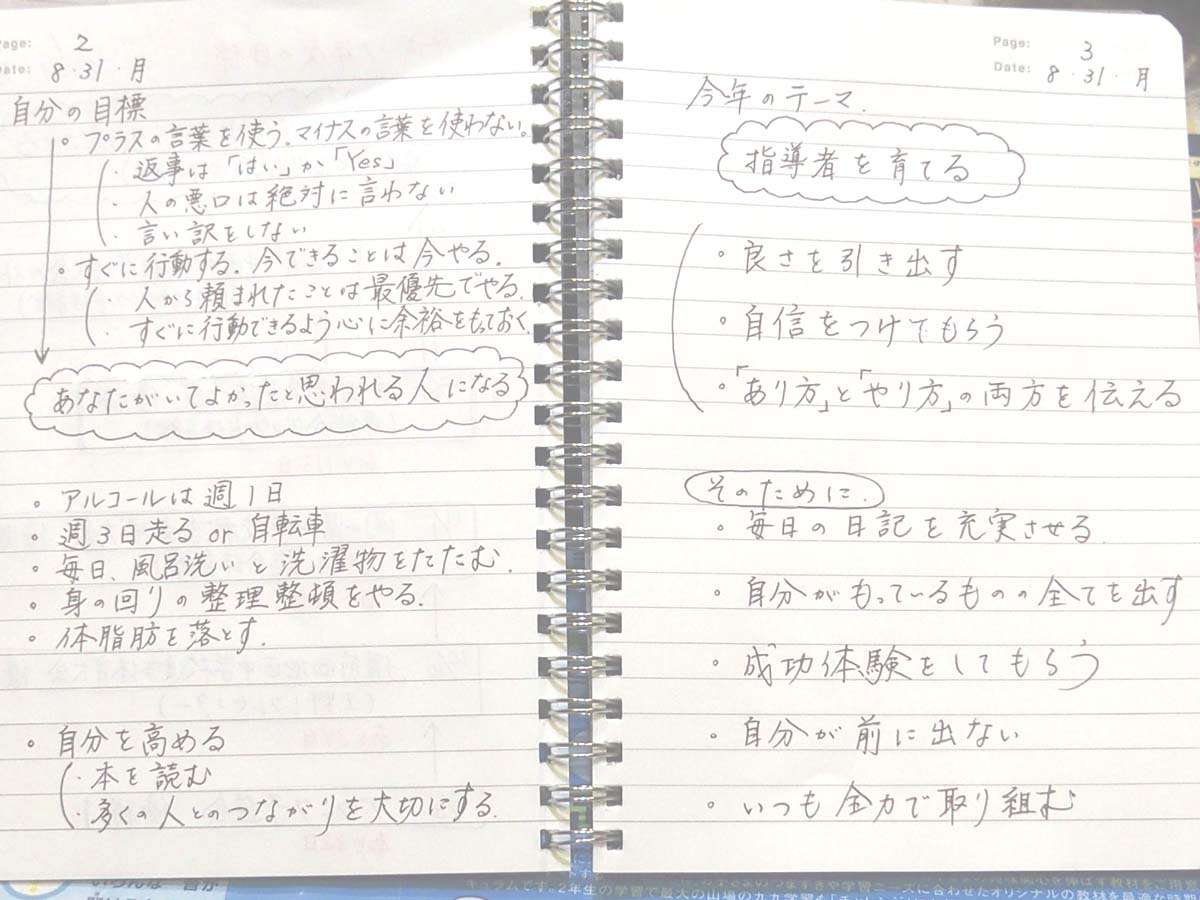 Page: 2
Date: 8・31・月
自分の目標
。プラスの言葉を使う。マイナスの言葉を使わない。
・返事は「はい」か「Yes」
・人の悪口は絶対に言わない
・言い訳をしない
。すぐに行動する。今できることは今やる。
・人から頼まれたことは最優先でやる。
・すぐに行動できるよう心に余裕をもっておく。
あなたがいてよかったと思われる人になる
。アルコールは週1日
。週3日走る or 自転車
。毎日、風呂洗いと洗濯物をたたむ。
。身の回りの整理整頓をやる。
。体脂肪を落とす。
。自分を高める
・本を読む
・多くの人とのつながりを大切にする。
Page: 3
Date: 8・31・月
今年のテーマ.
指導者を育てる
・良さを引き出す
・自信をつけてもらう
・「あり方」と「やり方」の両方を伝える
そのために.
・毎日の日記を充実させる.
・自分がもっているものの全てを出す
・成功体験をしてもらう
・自分が前に出ない
・いつも全力で取り組む